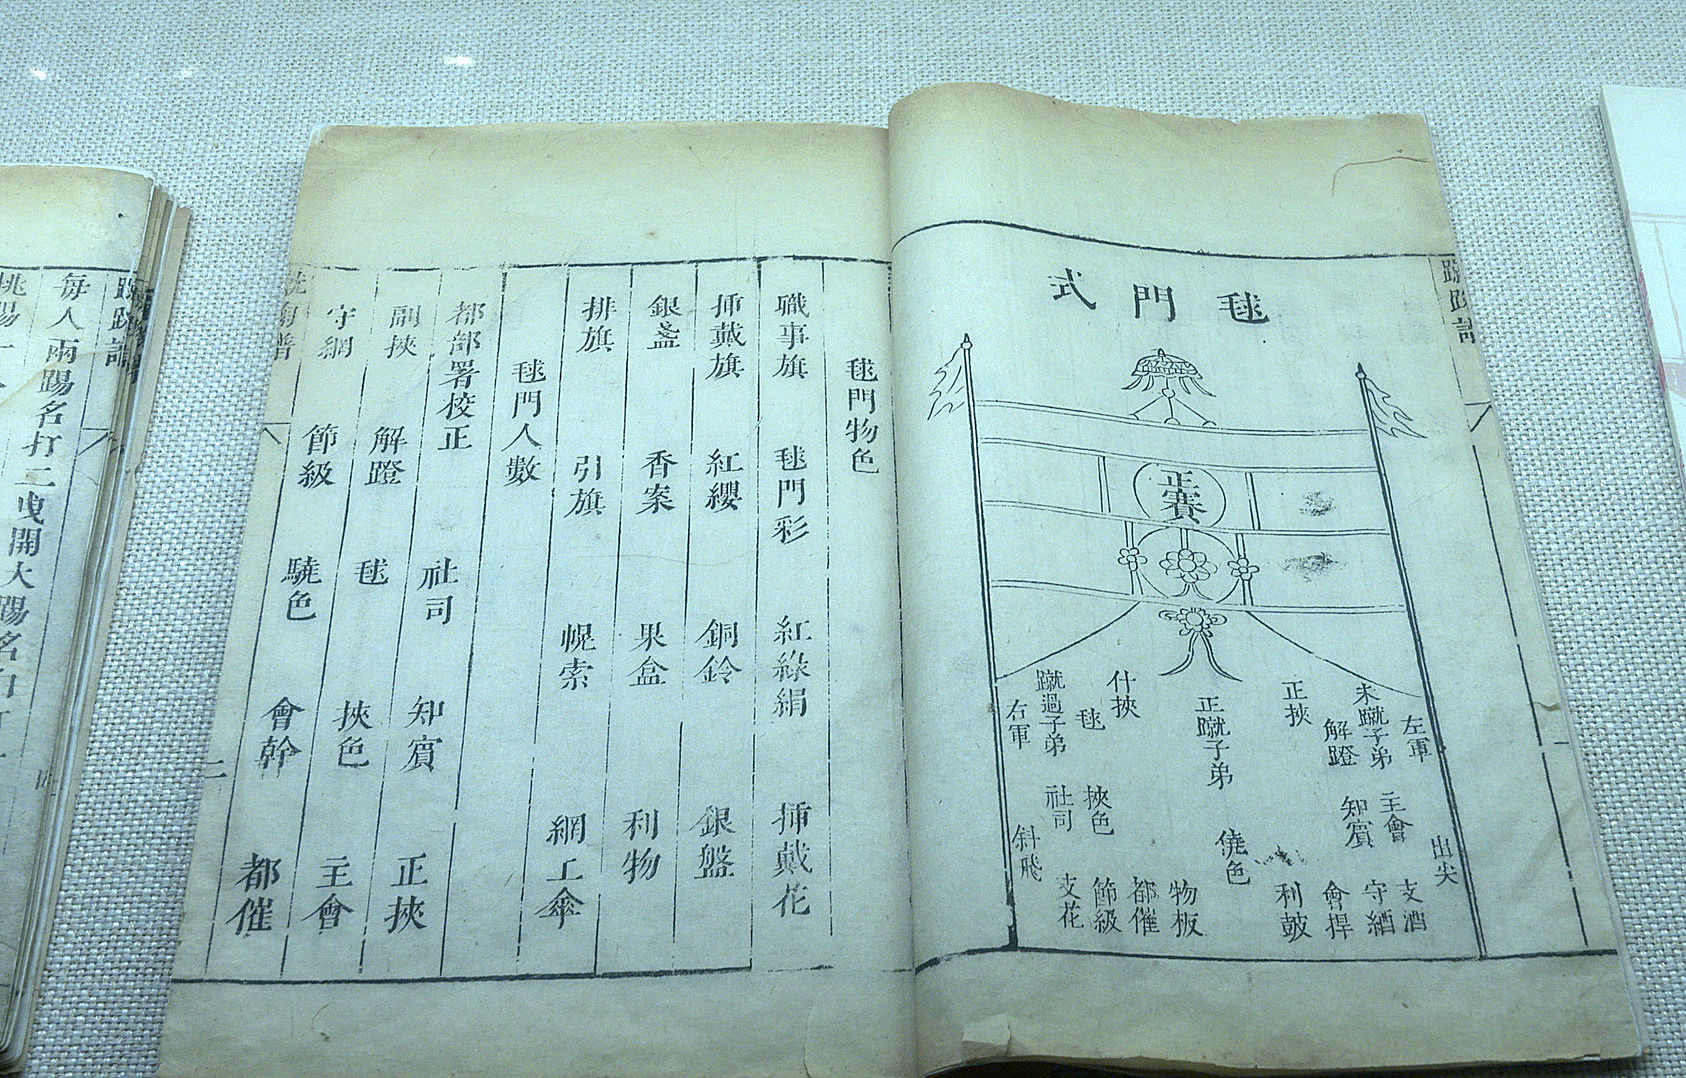 毬門式
正賽
左軍
未蹴子弟
解蹬
正挾
正蹴子弟
什挾
毬
蹴過子弟
右軍
主會
知賓
挾色
社司
出尖
僥色
斜飛
支酒
守網
會捍
利皷
物板
都催
節級
支花
一
毬門物色
職事旗 毬門彩 紅綠絹 挿戴花
挿戴旗 紅纓 銅鈴 銀盤
銀盞 香案 果盒 利物
排旗 引旗 幌索 網工傘
毬門人數
都部署校正 社司 知賓 正挾
副挾 解蹬 毬 挾色 主會
守網 節級 驍色 會幹 都催
二
每人兩踢名打二曳開大踢名白打